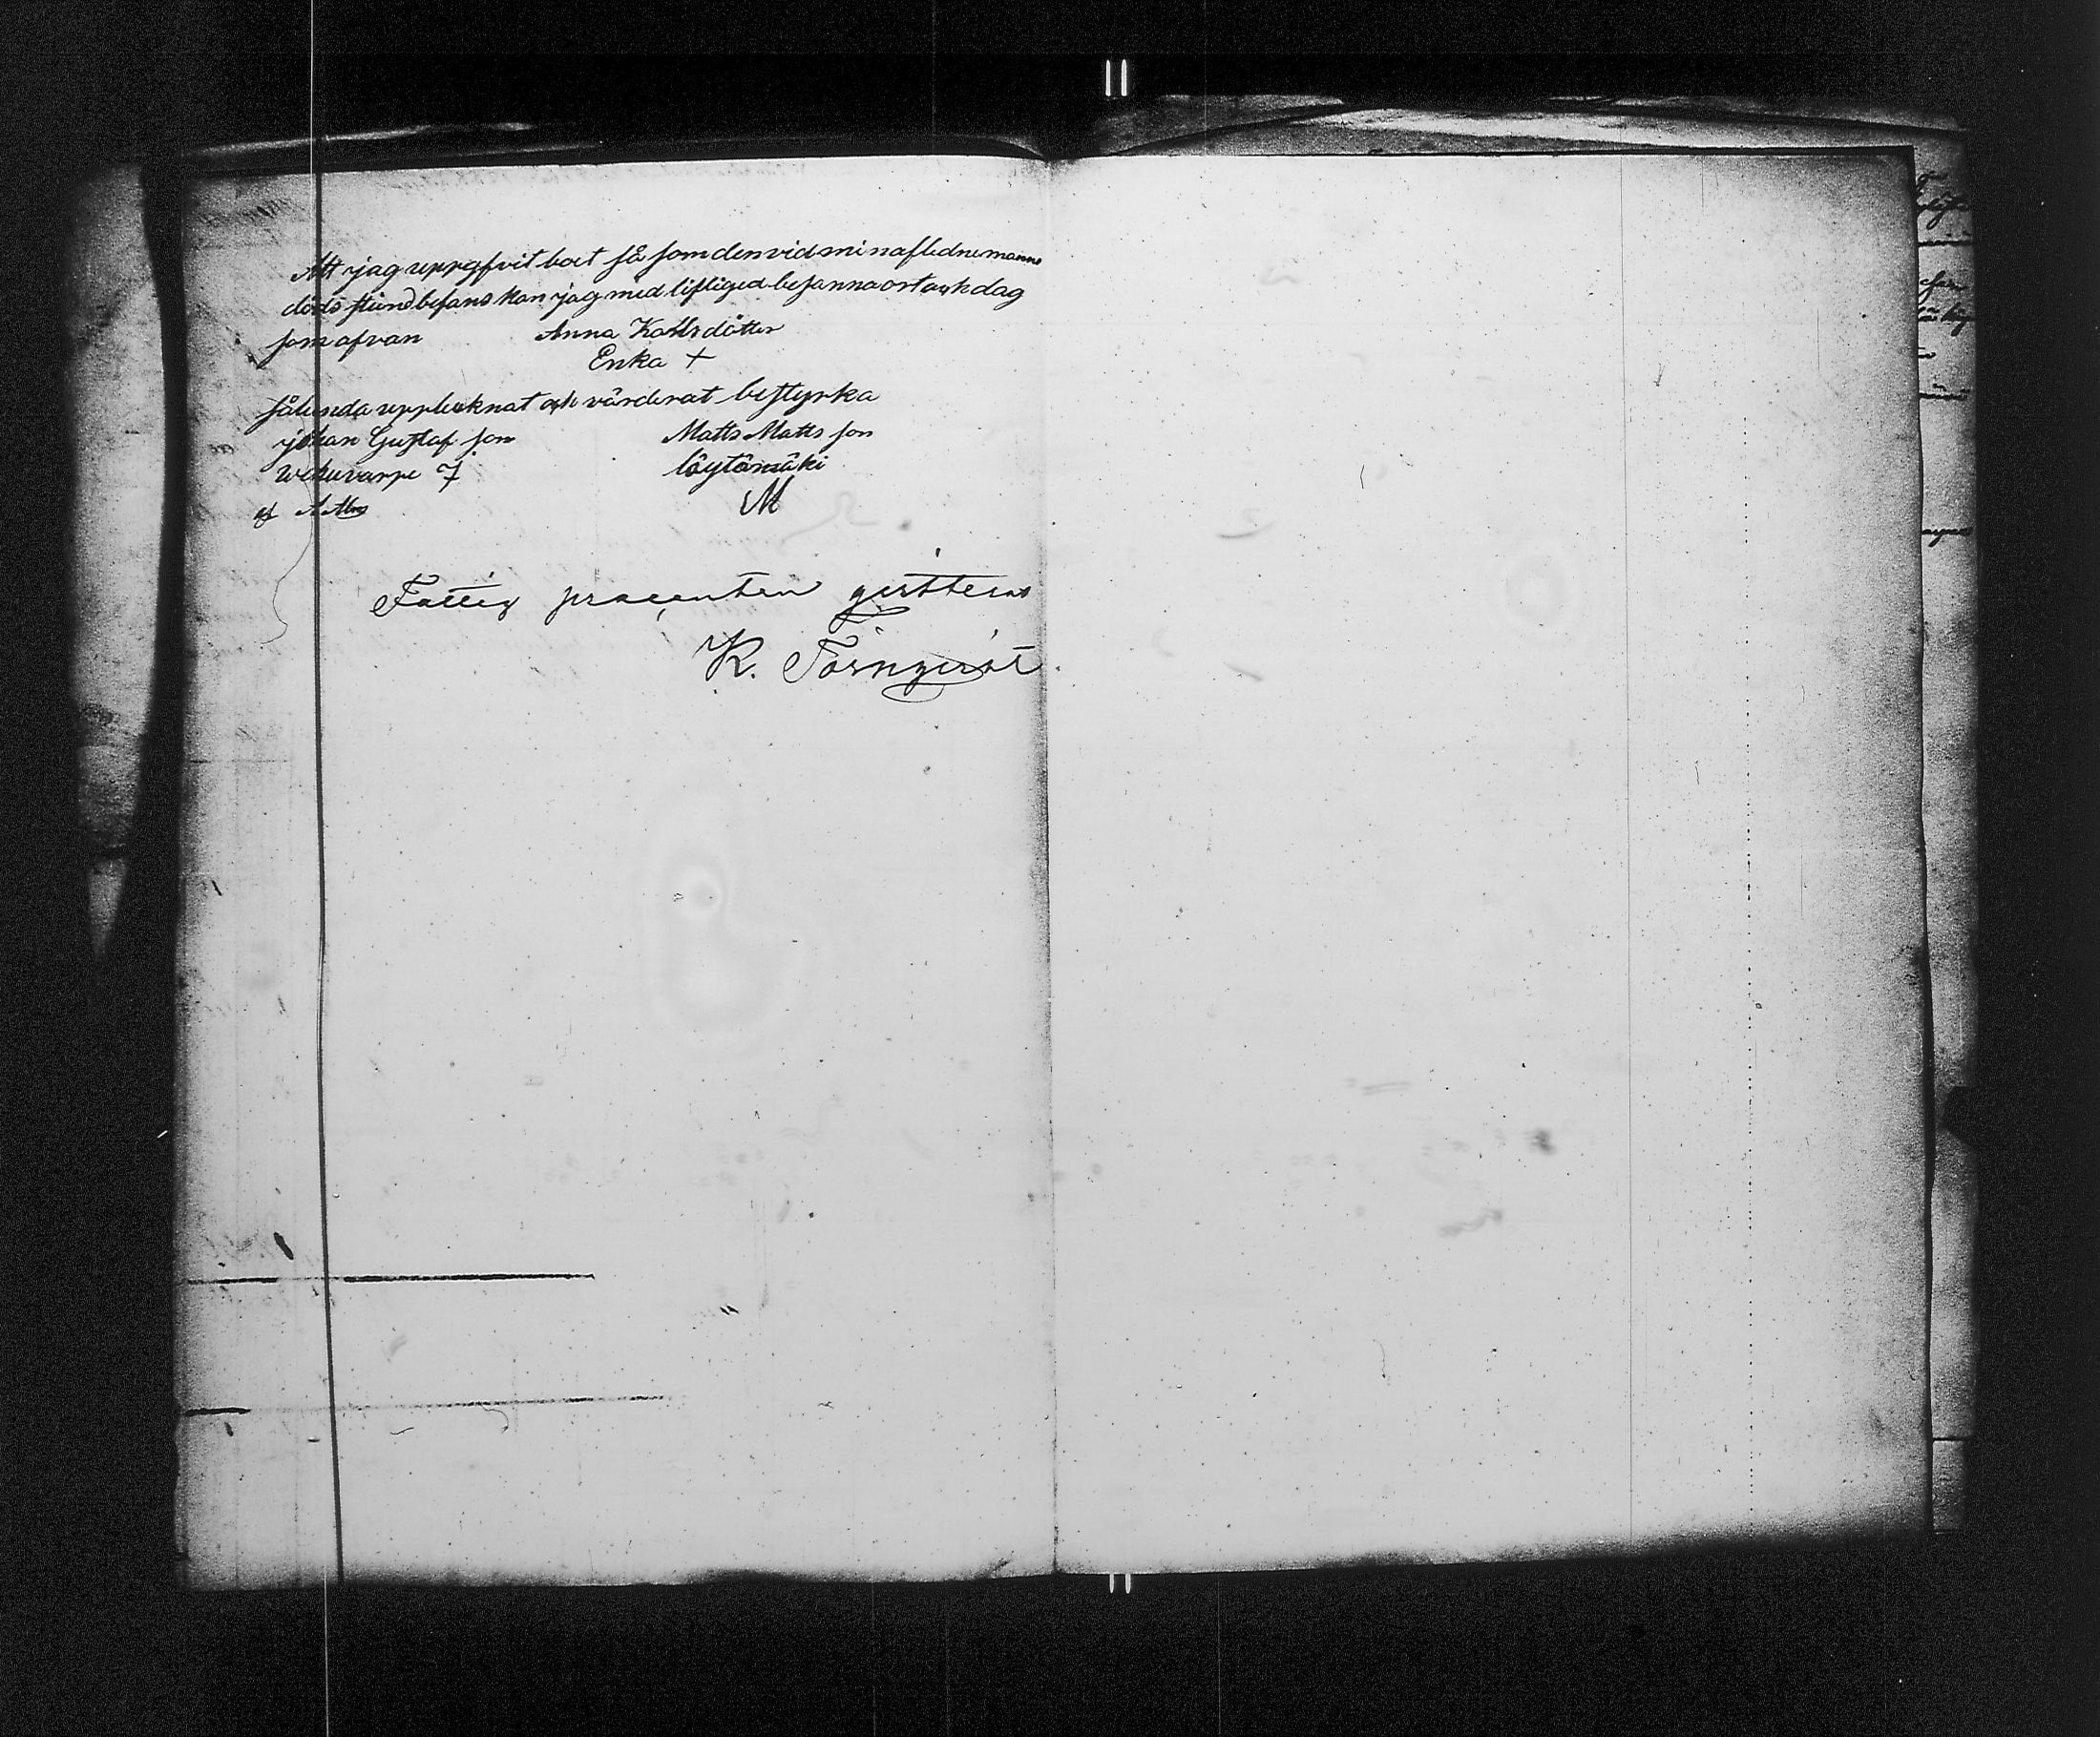 Att jag uppgifvit boet så som den vid min aflidne manns
döds stund befans kan jag med lifliged besanna ort och dag
som ofvan Anna Kallsdotter
Enka +
sålunda uppteknat och värderat bestyrka
johan Gustaf son Matts Matts son
löytömäki
M
Fattig procenten qvitteras
K. Törnqvist.